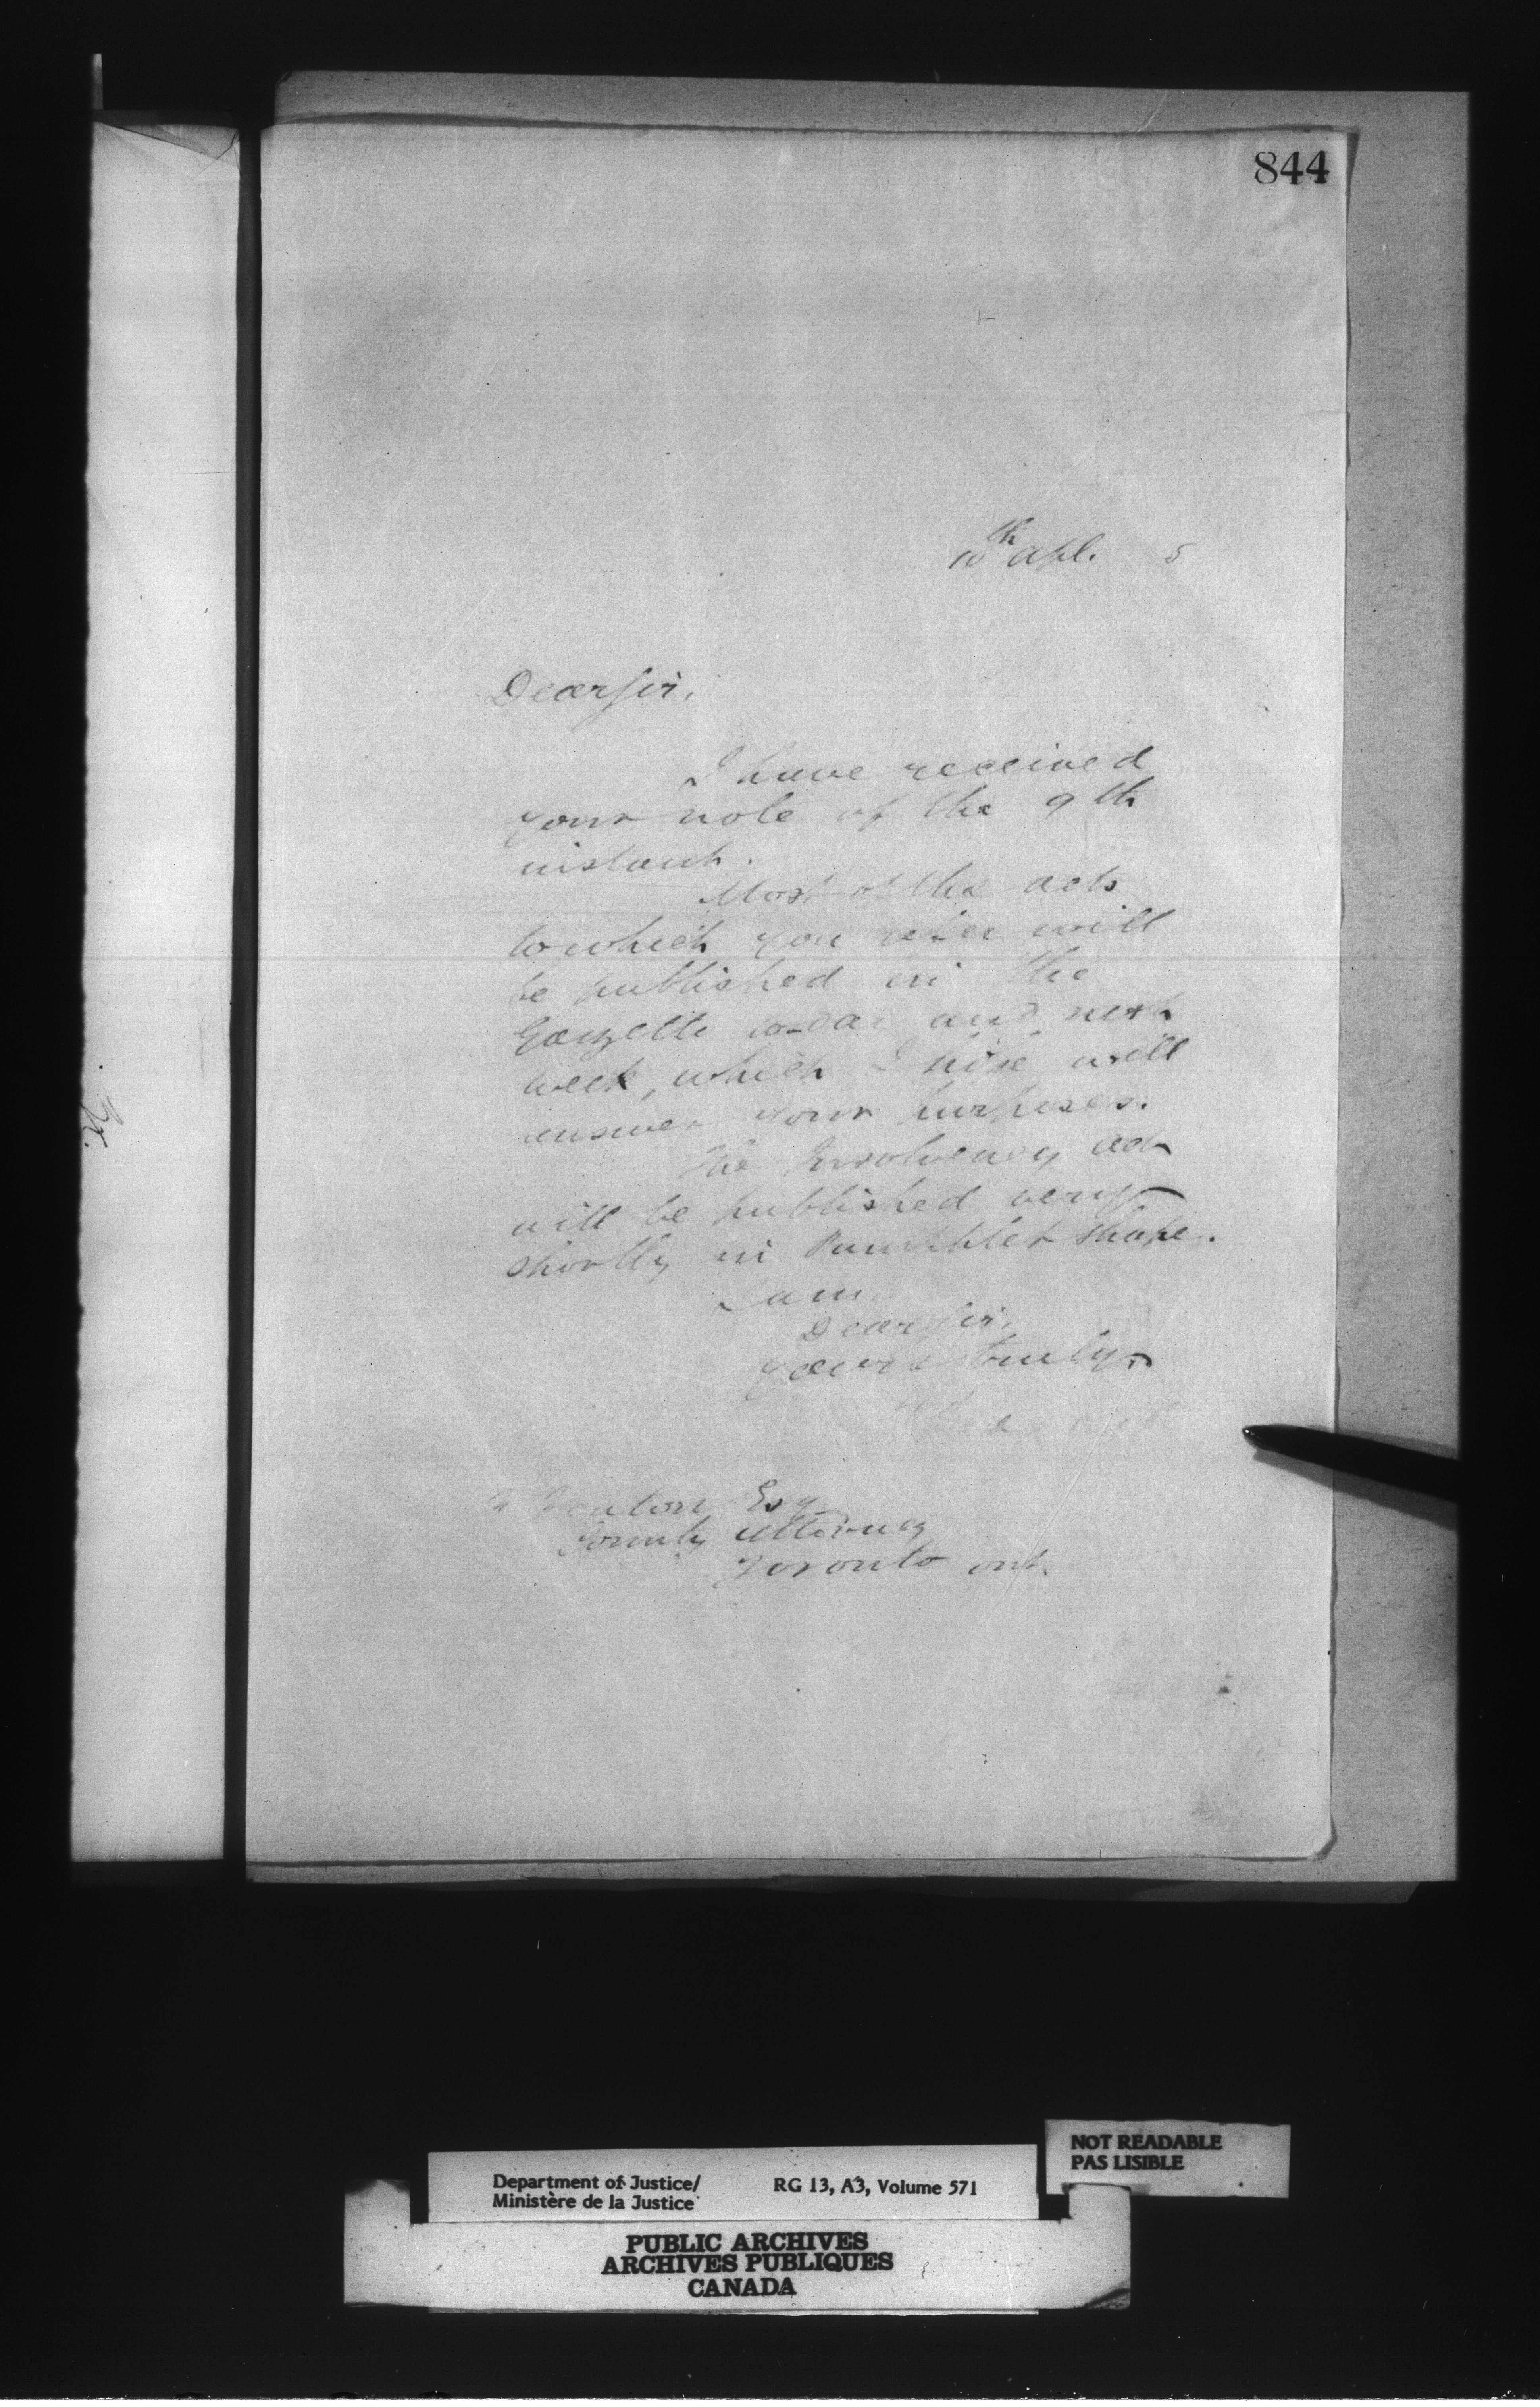 844
10th Apl. 5
Dear Sir,
I have received
your note of the 9th
instant.
Most of the acts
to which you refer will
be published in the
Gazette to-day and next
week, which I hope will
answer your purposes.
The Insolvency act
will be published very
shortly in Pamphlet shape.
I am
Dear Sir,
Yours truly,
Fenton Esq
County Attorney
Toronto Ont.
NOT READABLE
PAS LISIBLE
Department of Justice/ RG 13, A3, Volume 571
Ministère de la Justice
PUBLIC ARCHIVES
ARCHIVES PUBLIQUES
CANADA